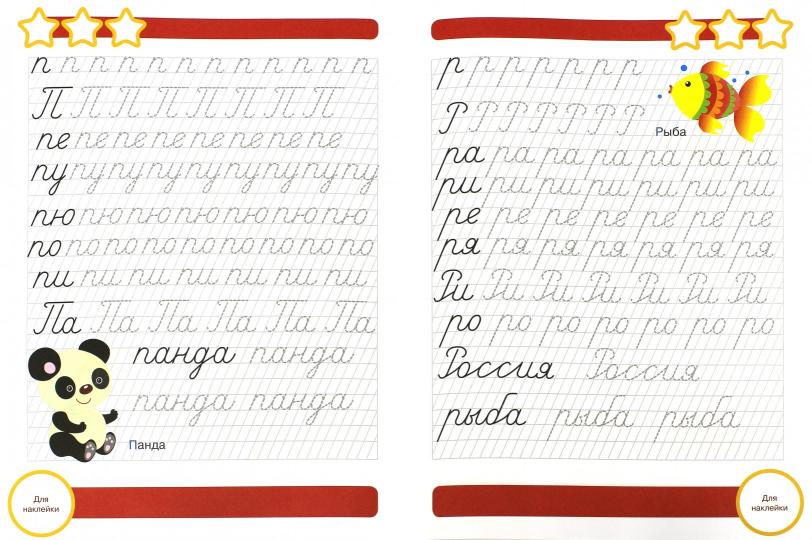 п п п п п п п п п п п п
П П П П П П П П П
пе пе пе пе пе пе пе пе пе
пу пу пу пу пу пу пу пу пу пу
пю пю пю пю пю пю пю
по по по по по по по по по по
пи пи пи пи пи пи пи
Па Па Па Па Па Па
панда панда
панда панда
Панда
Для
наклейки
р р р р р р р
Р Р Р Р Р Р Р
Рыба
ра ра ра ра ра ра ра
ри ри ри ри ри ри ри
ре ре ре ре ре ре ре
ря ря ря ря ря ря ря
Ри Ри Ри Ри Ри Ри Ри
ро ро ро ро ро ро ро
Россия Россия
рыба рыба рыба
Для
наклейки